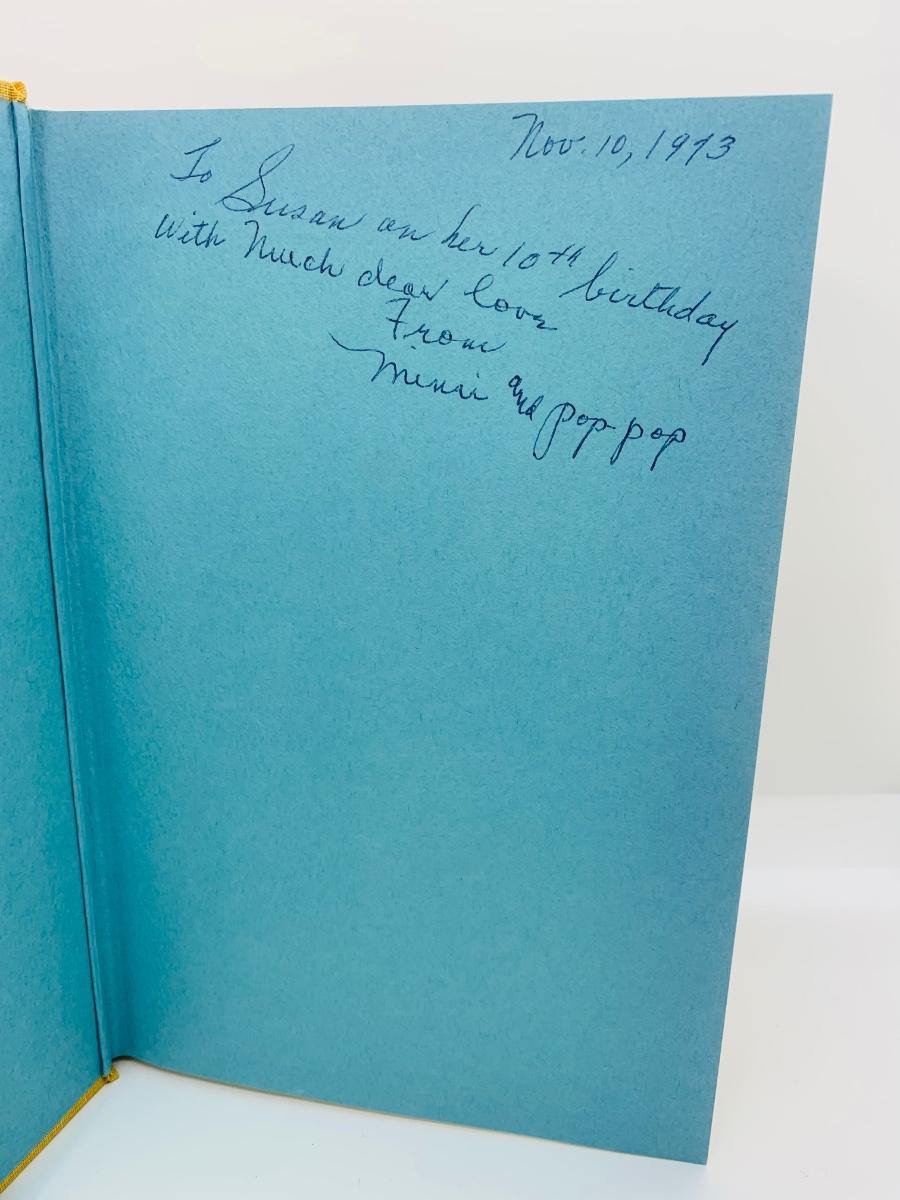 Nov. 10, 1973
To Susan on her 10th birthday
With Much dear love
From
Mimi and pop-pop